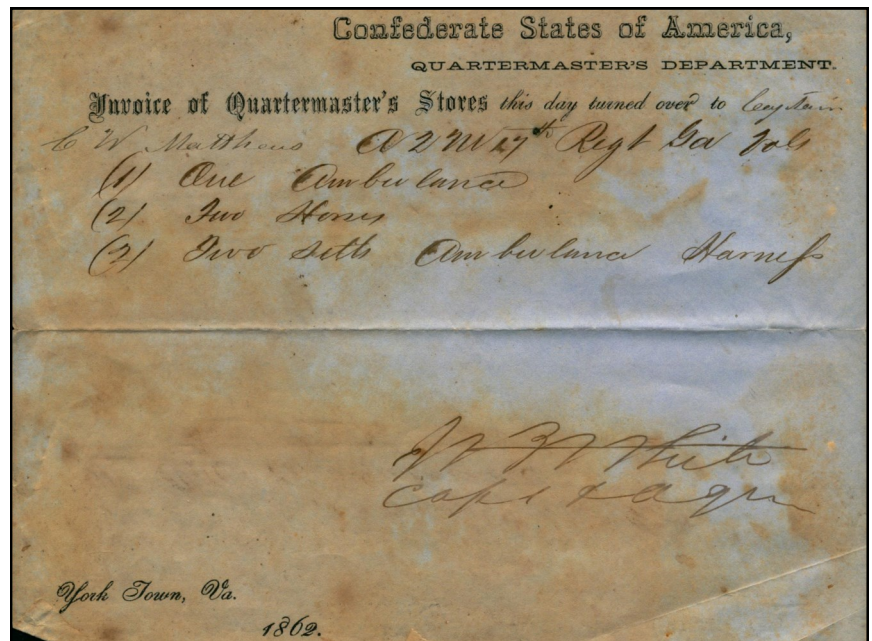 Confederate States of America,
QUARTERMASTER'S DEPARTMENT.
Invoice of Quartermaster's Stores this day turned over to Captain
C W Matthews A 2 M 17th Regt Ga Vols
(1) One Ambulance
(2) Two Horses
(2) Two setts Ambulance Harness
White
Capt & AQM
York Town, Va.
1862.